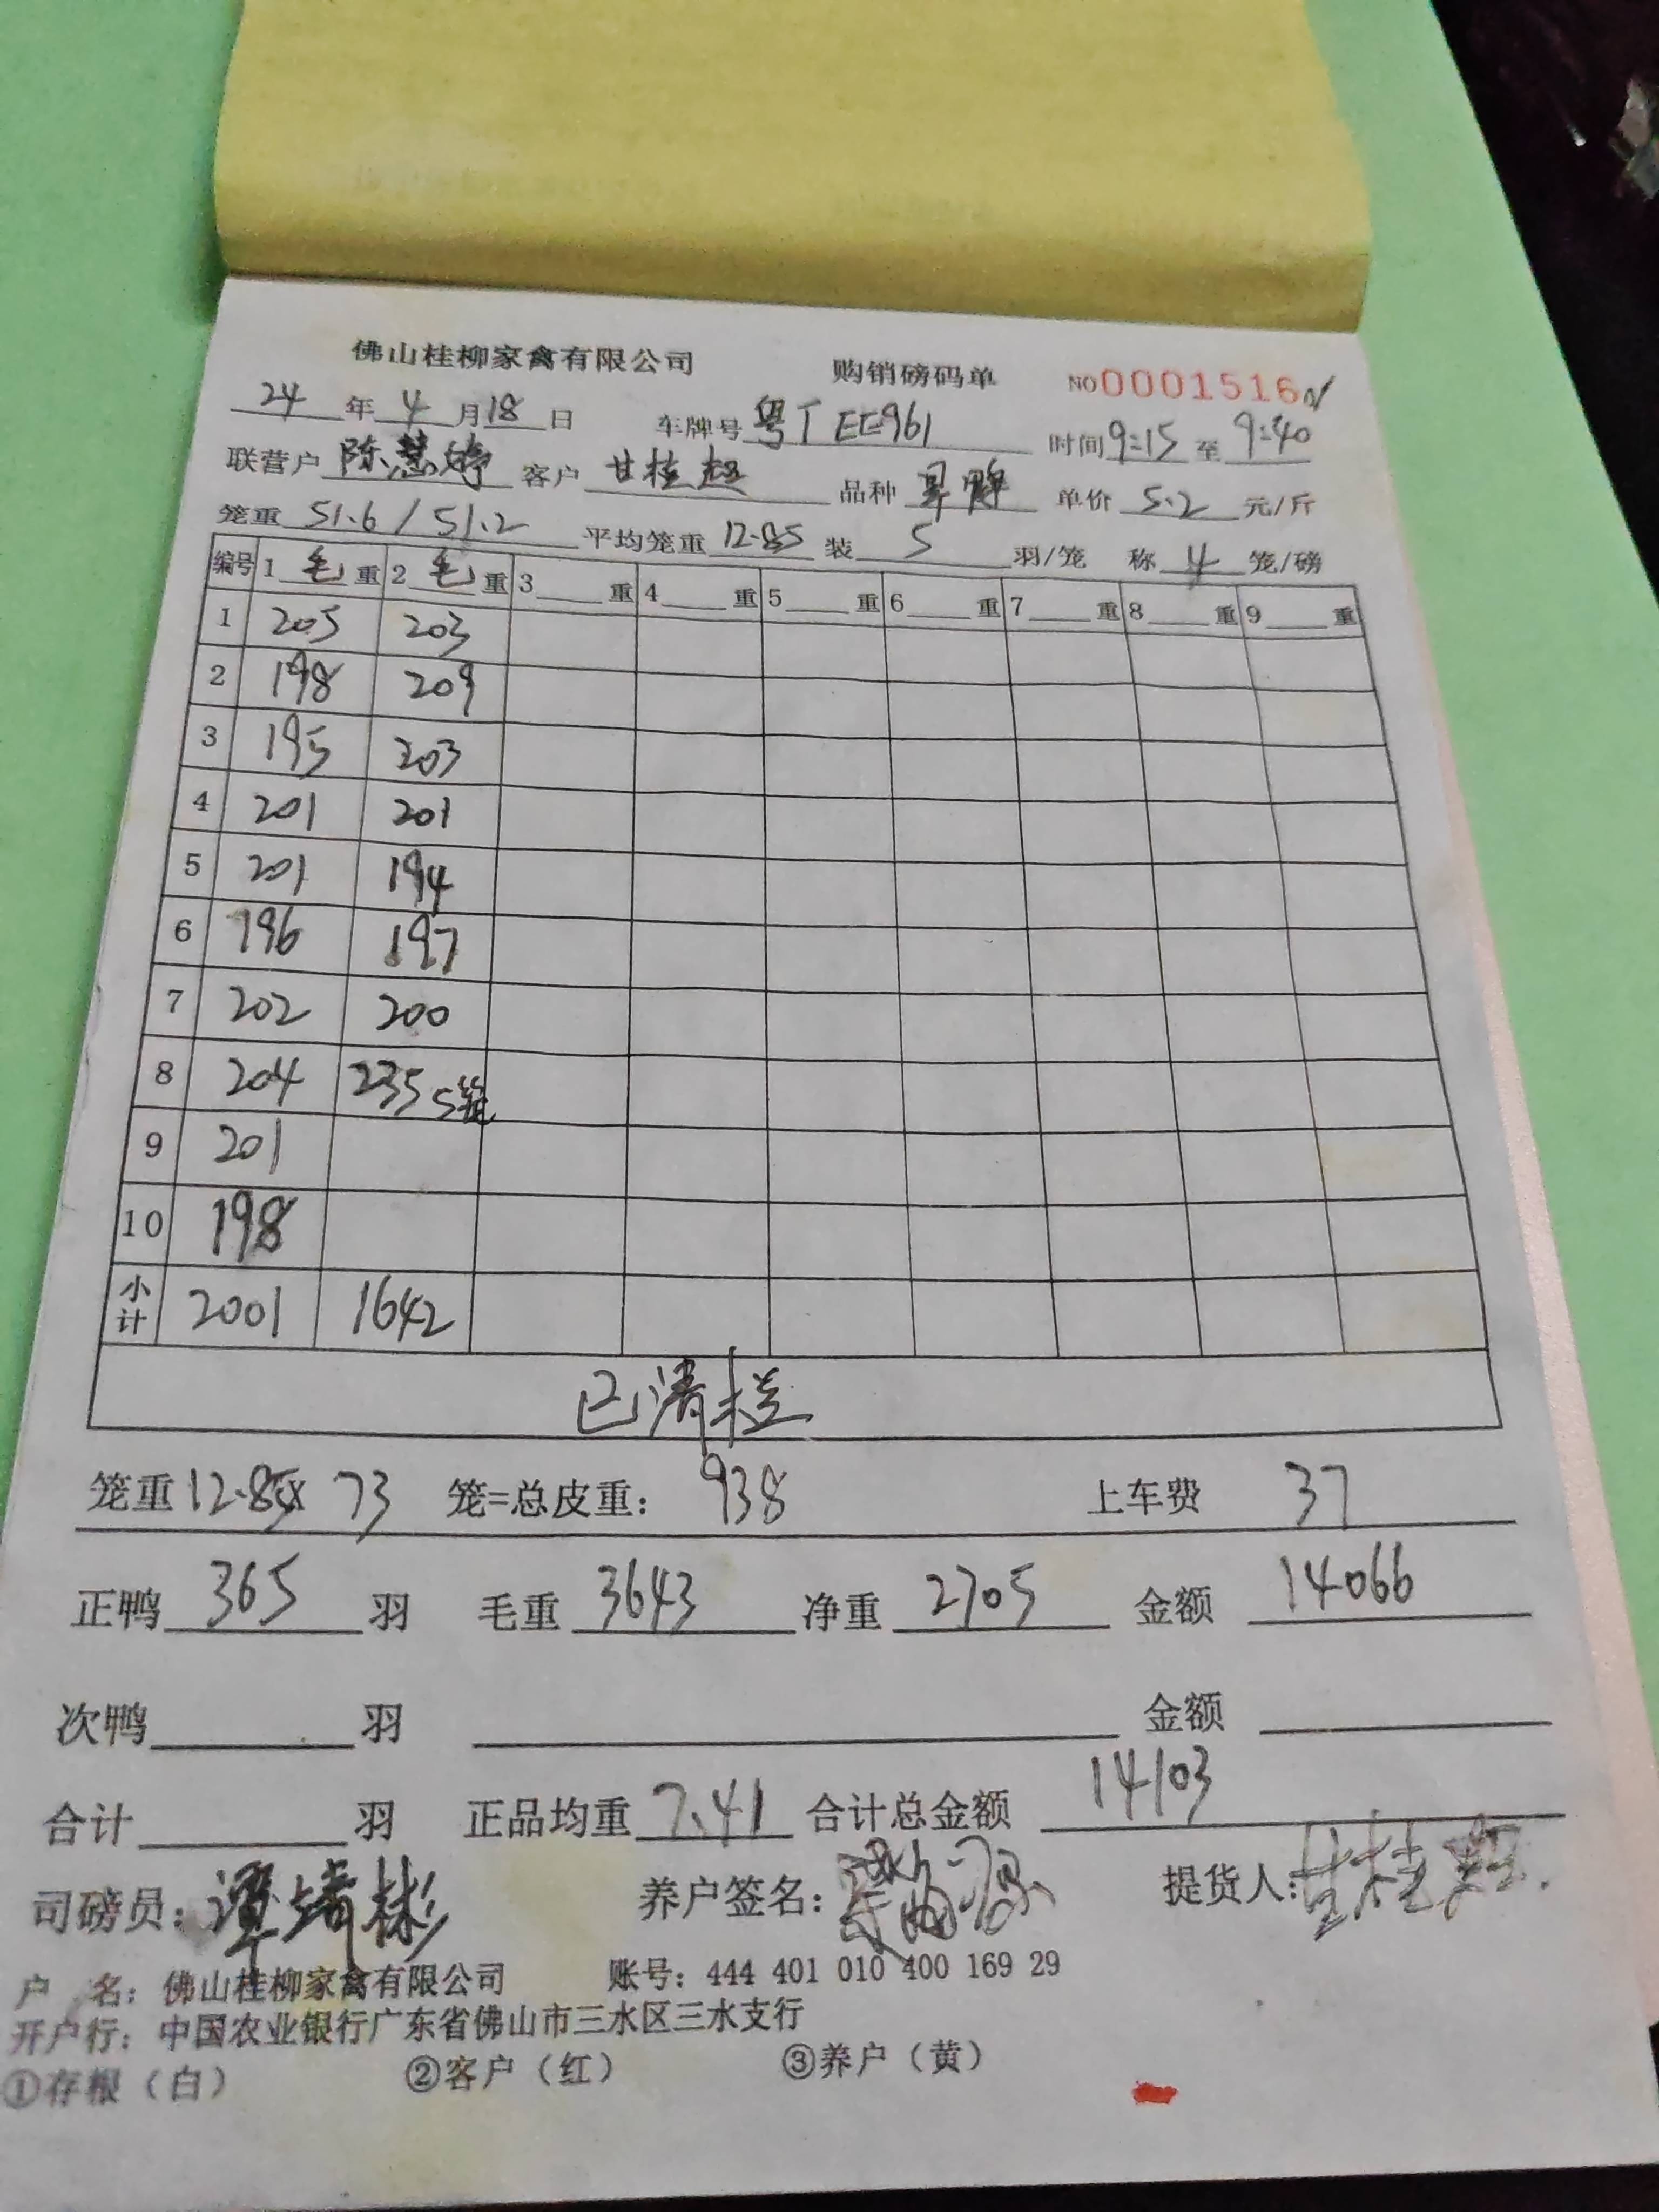 佛山桂柳家禽有限公司 购销磅码单 NO 0001516
24 年 4 月 18 日 车牌号 粤T EE961 时间 9:15 至 9:40
联营户 陈慧婷 客户 甘桂超 品种 单价 5.2 元/斤
笼重 51.6 / 51.2 平均笼重 12.85 装 5 羽/笼 称 4 笼/磅
编号 1 毛 重 2 毛 重 3 重 4 重 5 重 6 重 7 重 8 重 9 重
1 205 203
2 198 209
3 195 203
4 201 201
5 201 194
6 196 197
7 202 200
8 204 235 5笼
9 201
10 198
小计 2001 1642
已清栏
笼重 12.85x 73 笼=总皮重: 938 上车费 37
正鸭 365 羽 毛重 3643 净重 2705 金额 14066
次鸭 羽 金额
合计 羽 正品均重 7.41 合计总金额 14103
司磅员: 谭靖彬 养户签名: 提货人: 甘桂超
户 名: 佛山桂柳家禽有限公司 账号: 444 401 010 400 169 29
开户行: 中国农业银行广东省佛山市三水区三水支行
①存根（白） ②客户（红） ③养户（黄）